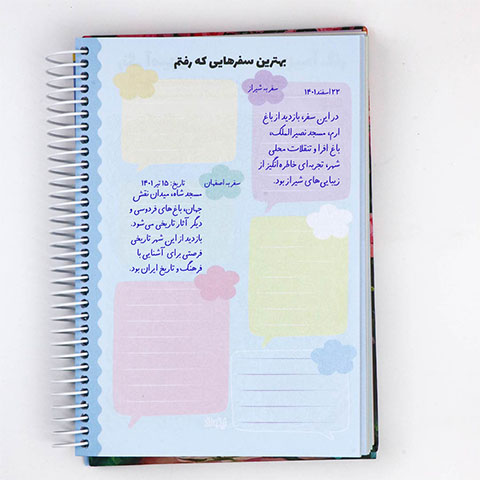 بهترین سفرهایی که رفتم
سفر به شیراز
۲۲ اسفند ۱۴۰۱
در این سفر، بازدید از باغ
ارم، مسجد نصیرالملک،
باغ افرا و تنقلات محلی
شهر، تجربه‌ای خاطره انگیز از
زیبایی‌های شیراز بود.
سفر به اصفهان
تاریخ: ۱۵ تیر ۱۴۰۱
مسجد شاه، میدان نقش
جهان، باغ‌های فردوسی و
دیگر آثار تاریخی می‌شود.
بازدید از این شهر تاریخی
فرصتی برای آشنایی با
فرهنگ و تاریخ ایران بود.